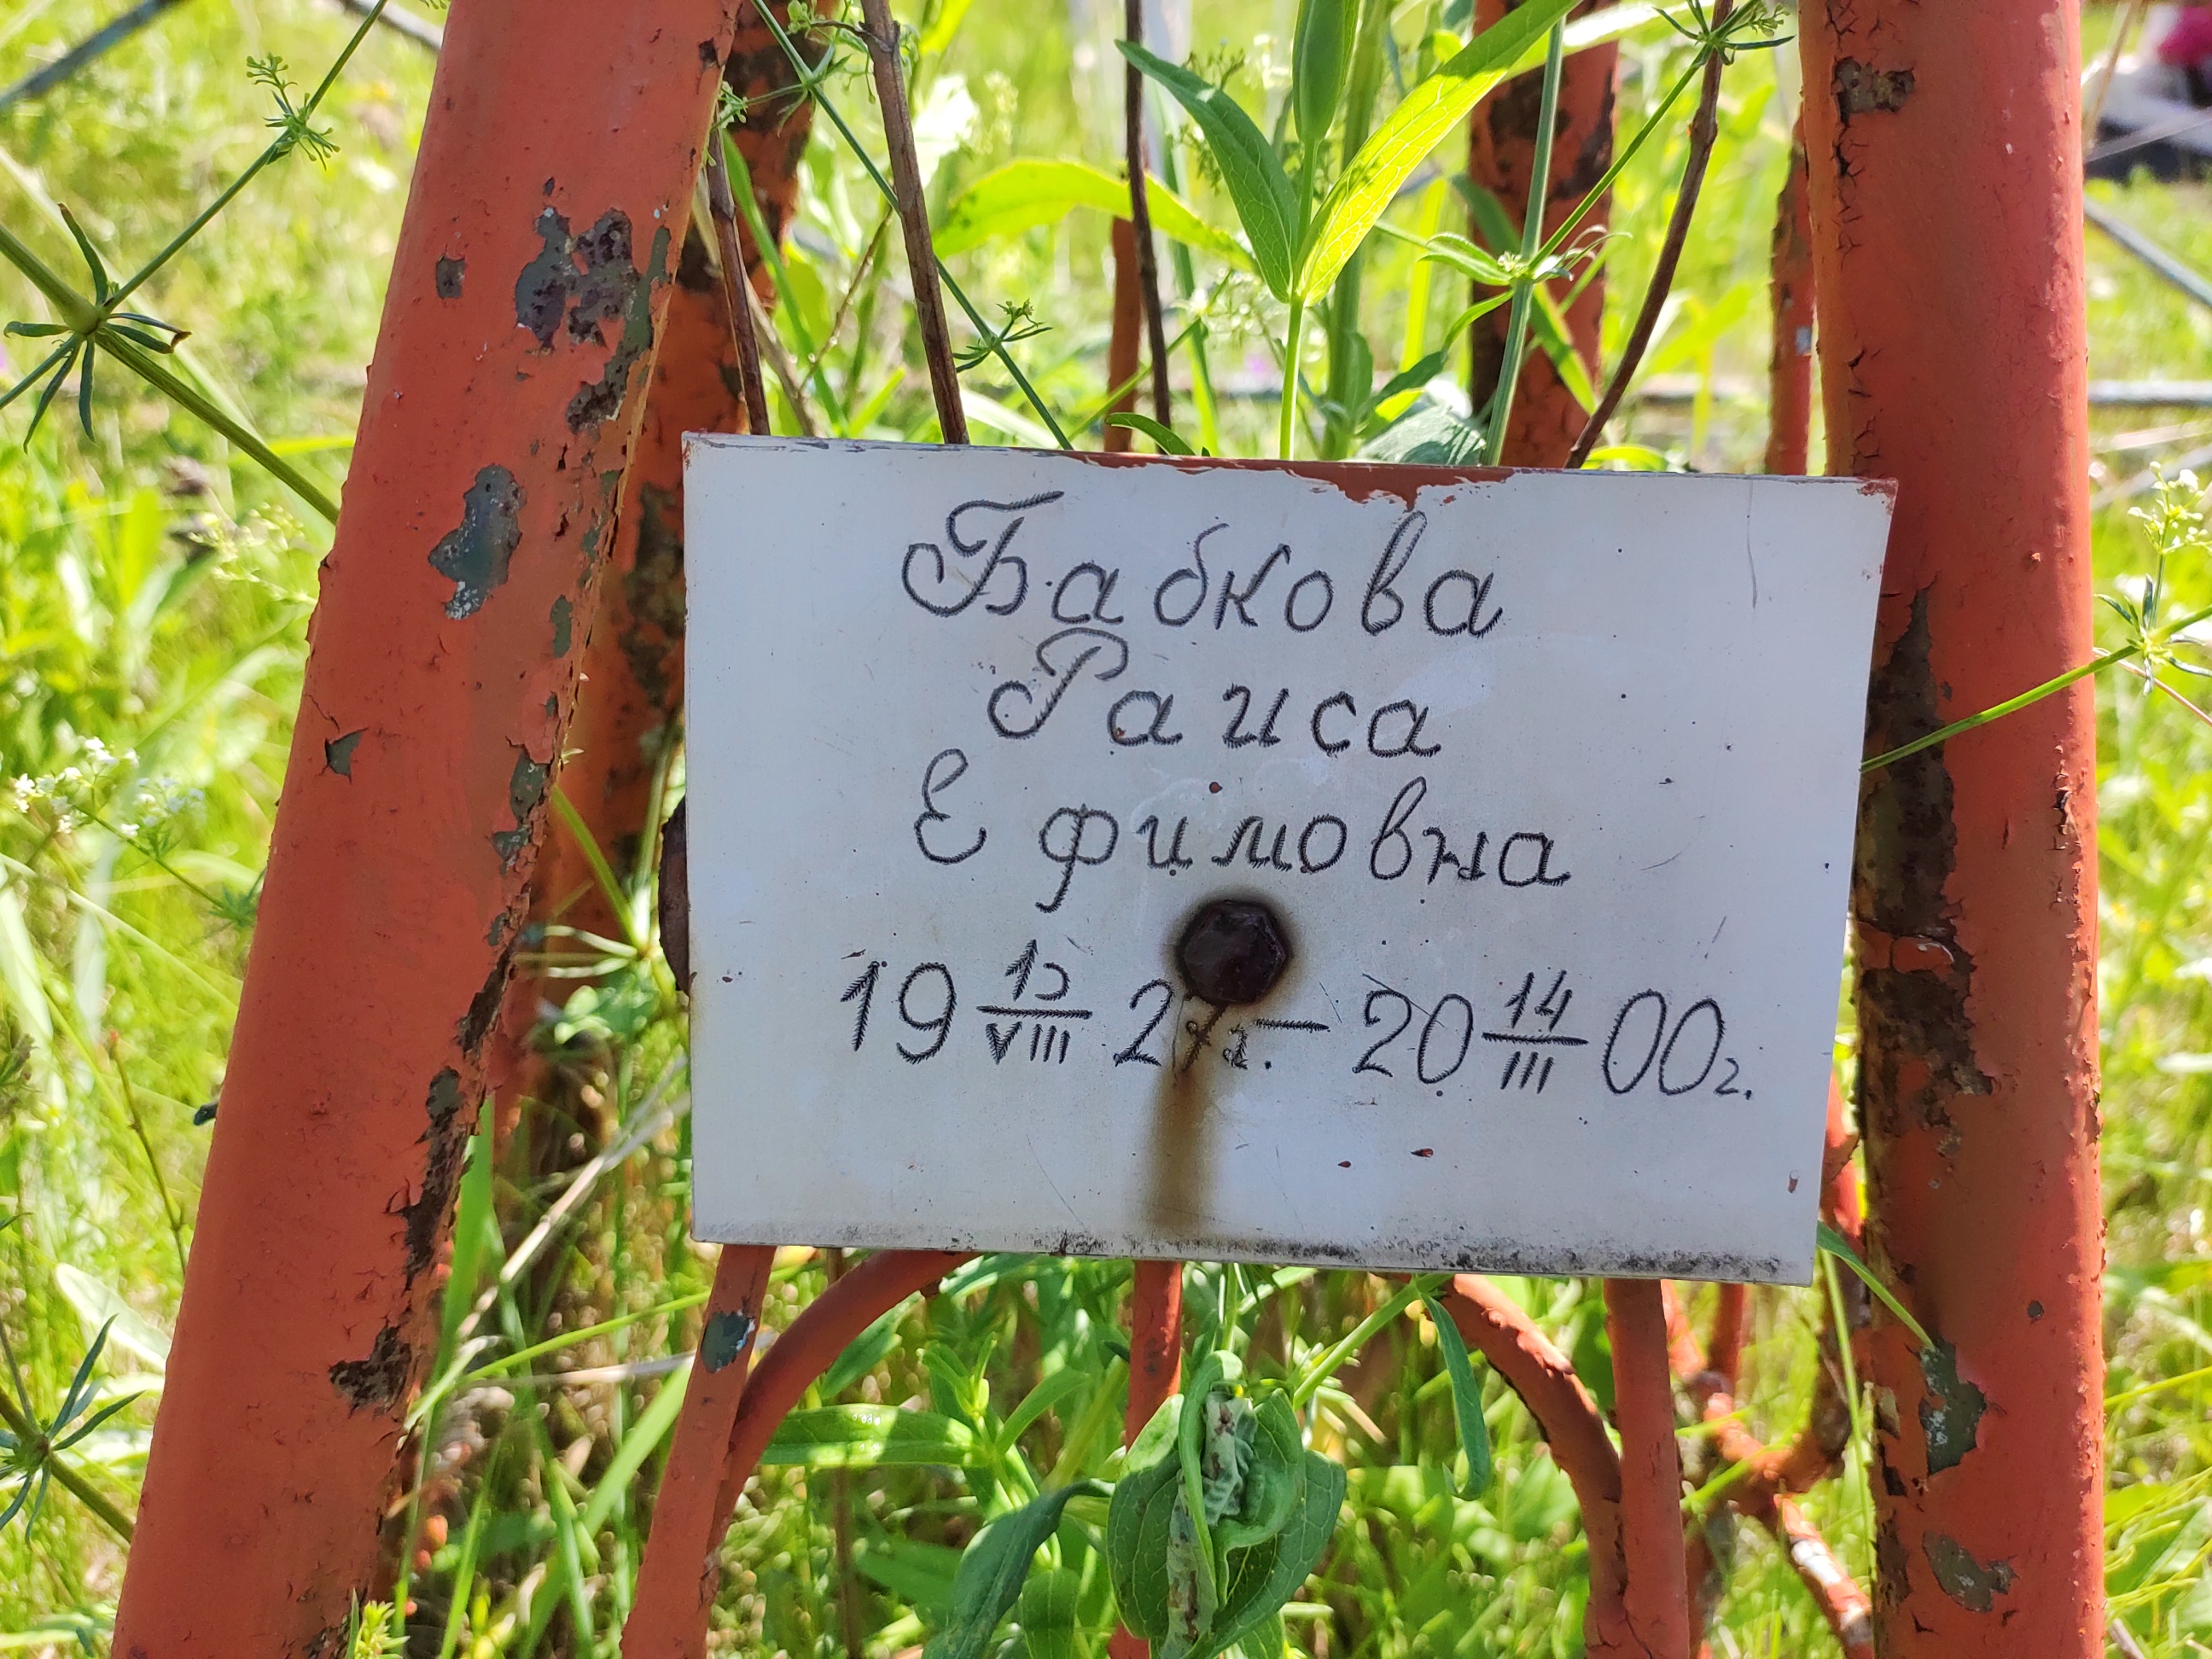 Бабкова
Раиса
Ефимовна
19 VIII г. – 20 14/III 00г.